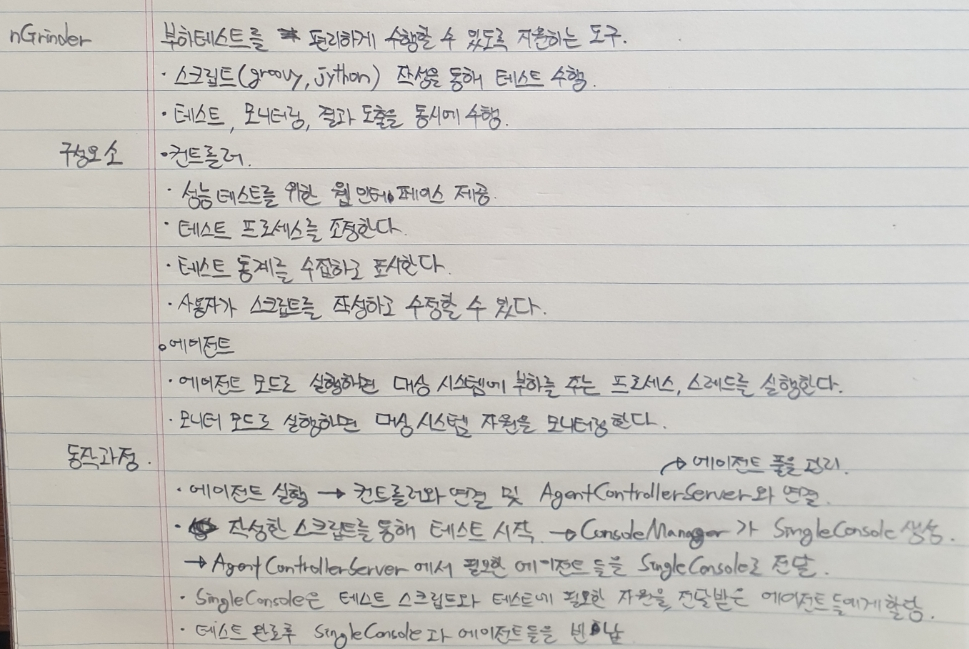 nGrinder 부하테스트를 편리하게 수행할 수 있도록 지원하는 도구.
· 스크립트(groovy, jython) 작성을 통해 테스트 수행.
· 테스트, 모니터링, 결과 도출을 동시에 수행.
구성요소 · 컨트롤러.
· 성능 테스트를 위한 웹 인터페이스 제공.
· 테스트 프로세스를 조정한다.
· 테스트 통계를 수집하고 표시한다.
· 사용자가 스크립트를 작성하고 수정할 수 있다.
◦ 에이전트
· 에이전트 모드로 실행하면 대상 시스템에 부하를 주는 프로세스, 스레드를 실행한다.
· 모니터 모드로 실행하면 대상 시스템 자원을 모니터링 한다.
동작과정. → 에이전트 풀을 관리.
· 에이전트 실행 → 컨트롤러와 연결 및 AgentControllerServer와 연결.
· 작성한 스크립트를 통해 테스트 시작. → ConsoleManager가 SingleConsole 생성.
→ AgentControllerServer에서 필요한 에이전트 들을 SingleConsole로 전달.
· SingleConsole은 테스트 스크립트와 테스트에 필요한 자원을 전달받은 에이전트들에게 할당.
· 테스트 완료후 SingleConsole과 에이전트들을 반납